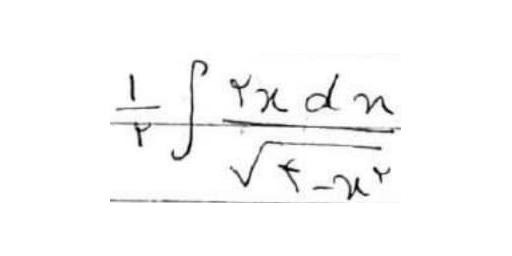 \frac{۱}{۲} \int \frac{۲x dx}{\sqrt{۴-x^۲}}